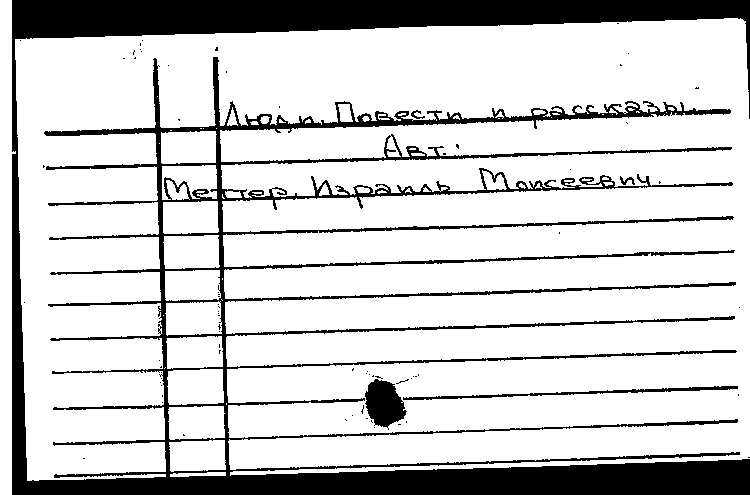 Люди. Повести и рассказы.
Авт.:
Меттер, Израиль Моисеевич.